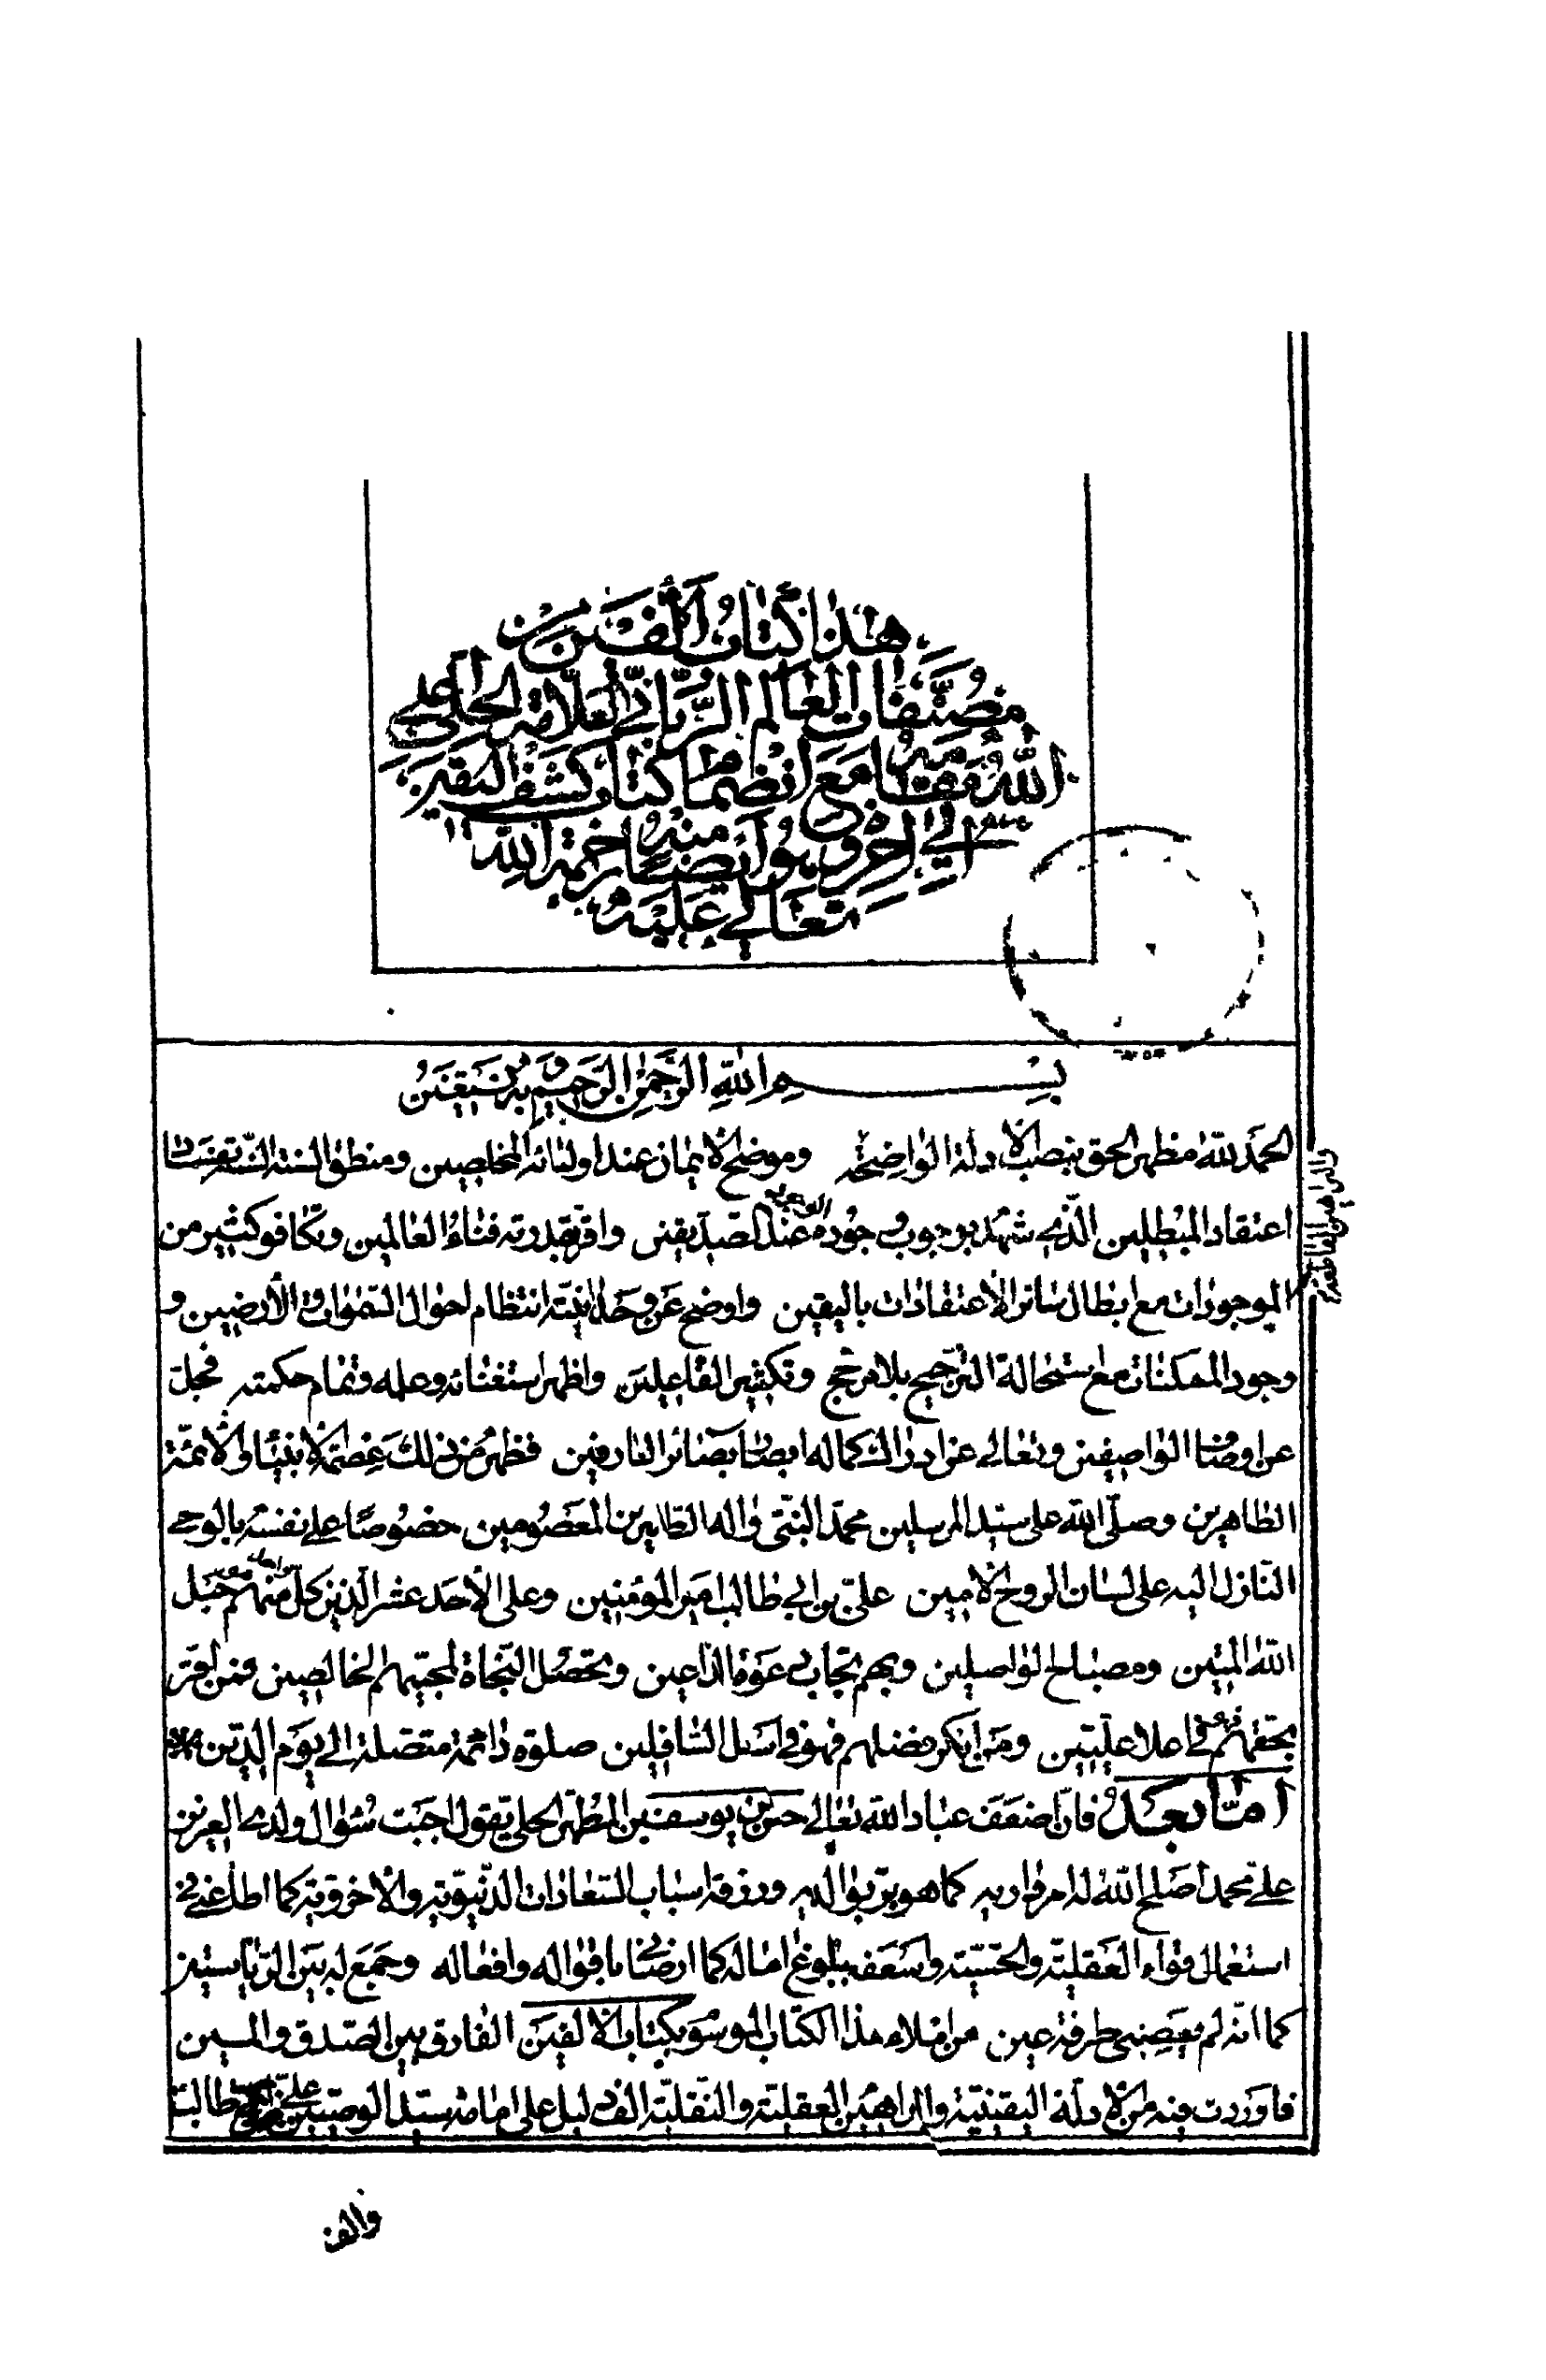 هذا كتاب الفين من
مصنفات العالم الربانى العلامة الحلى اعلى
الله مقامه مع انضمام كتاب كشف اليقين
الى اخره وهو ايضا منه رحمة الله
تعالى عليه
بسم الله الرحمن الرحيم وبه نستعين
الحمد لله مظهر الحق بنصب الادلة الواضحة وموضح الايمان عند اوليائه المخلصين ومنطق السنة
والبراهين القاطعة
اعتقاد المبطلين الذى شهد بوجوب وجوده عند الصديقين واقر بقدرته فناء العالمين وتكافو كثير من
الموجودات مع ابطال سائر الاعتقادات باليقين واوضح عن وحدانيته انتظام احوال السموات والأرضين و
وجود الممكنات مع استحالة الترجيح بلا مرجح وتكثير الفاعلين واظهر استغنائه وعلمه وتمام حكمته فجل
عن اوصاف الواصفين وتعالى عن ادراك كماله ابصار بصائر العارفين فظهر من ذلك عصمة الانبياء والائمة
الطاهرين وصلى الله على سيد المرسلين محمد النبى واله الطاهرين المعصومين خصوصا على نفسه بالوحى
النازل اليه على لسان الروح الامين على بن ابى طالب امير المؤمنين وعلى الأحد عشر الذين كل منهم حبل
الله المتين ومصباح الواصلين وبهم تجاب دعوة الداعين وتحصل النجاة لمحبيهم الخالصين فمن اقر
بحقهم فهو فى اعلا عليين ومن انكر فضلهم فهو فى اسفل السافلين صلوة دائمة متصلة الى يوم الدين
اما بعد فان اضعف عباد الله تعالى حسن بن يوسف بن المطهر الحلى يقول اجبت سؤال ولدى العزيز
على محمد اصلح الله له امر داريه كما هو بر بوالديه ورزقه اسباب السعادات الدنيوية والأخروية كما اطاعنى فى
استعمال قواه العقلية والحسية واسعفه ببلوغ اماله كما ارضانى باقواله وافعاله وجمع له بين الرياستين
كما انه لم يعصنى طرفة عين من املاء هذا الكتاب الموسوم بكتاب الالفين الفارق بين الصدق والمين
فاوردت فيه من الادلة اليقينية والبراهين العقلية والنقلية الف دليل على امامة سيد الوصيين على بن ابى طالب
والف